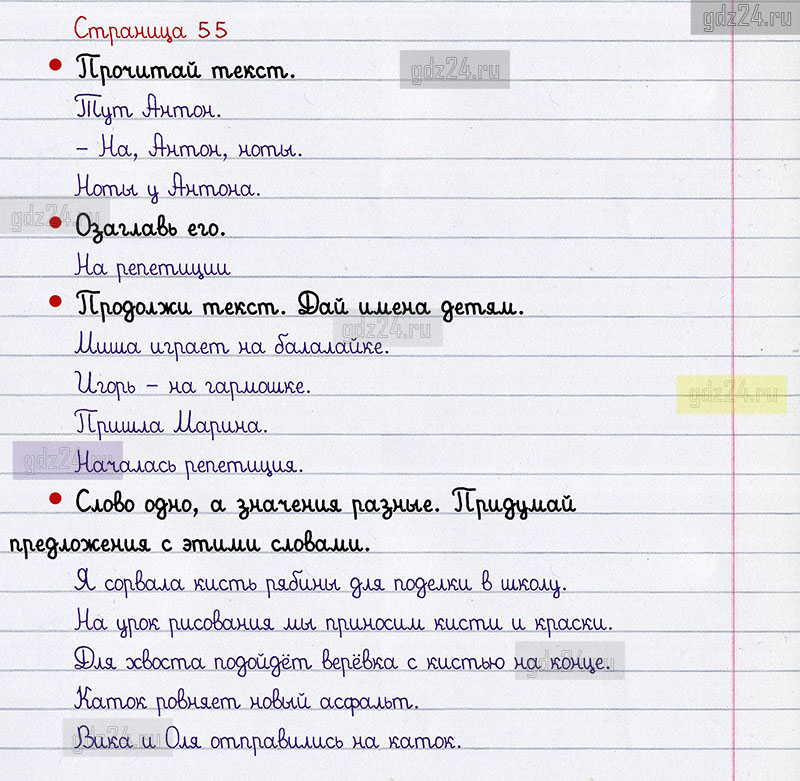 gdz24.ru
Страница 55
Прочитай текст.
gdz24.ru
Тут Антон.
– На, Антон, ноты.
Ноты у Антона.
gdz24.ru
Озаглавь его.
На репетиции
Продолжи текст. Дай имена детям.
gdz24.ru
Миша играет на балалайке.
Игорь – на гармошке.
gdz24.ru
Пришла Марина.
gdz24.ru
Началась репетиция.
Слово одно, а значения разные. Придумай
предложения с этими словами.
Я сорвала кисть рябины для поделки в школу.
На урок рисования мы приносим кисти и краски.
Для хвоста подойдёт верёвка с кистью на конце.
gdz24.ru
Каток ровняет новый асфальт.
gdz24.ru
Вика и Оля отправились на каток.